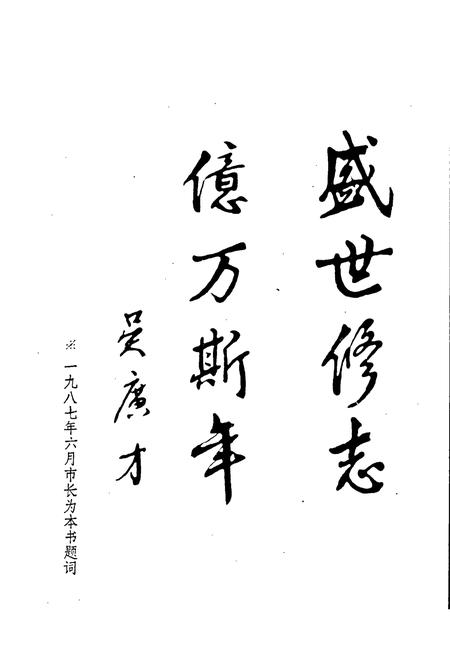 盛世修志
億万斯年
吴廣才
※ 一九八七年六月市长为本书题词